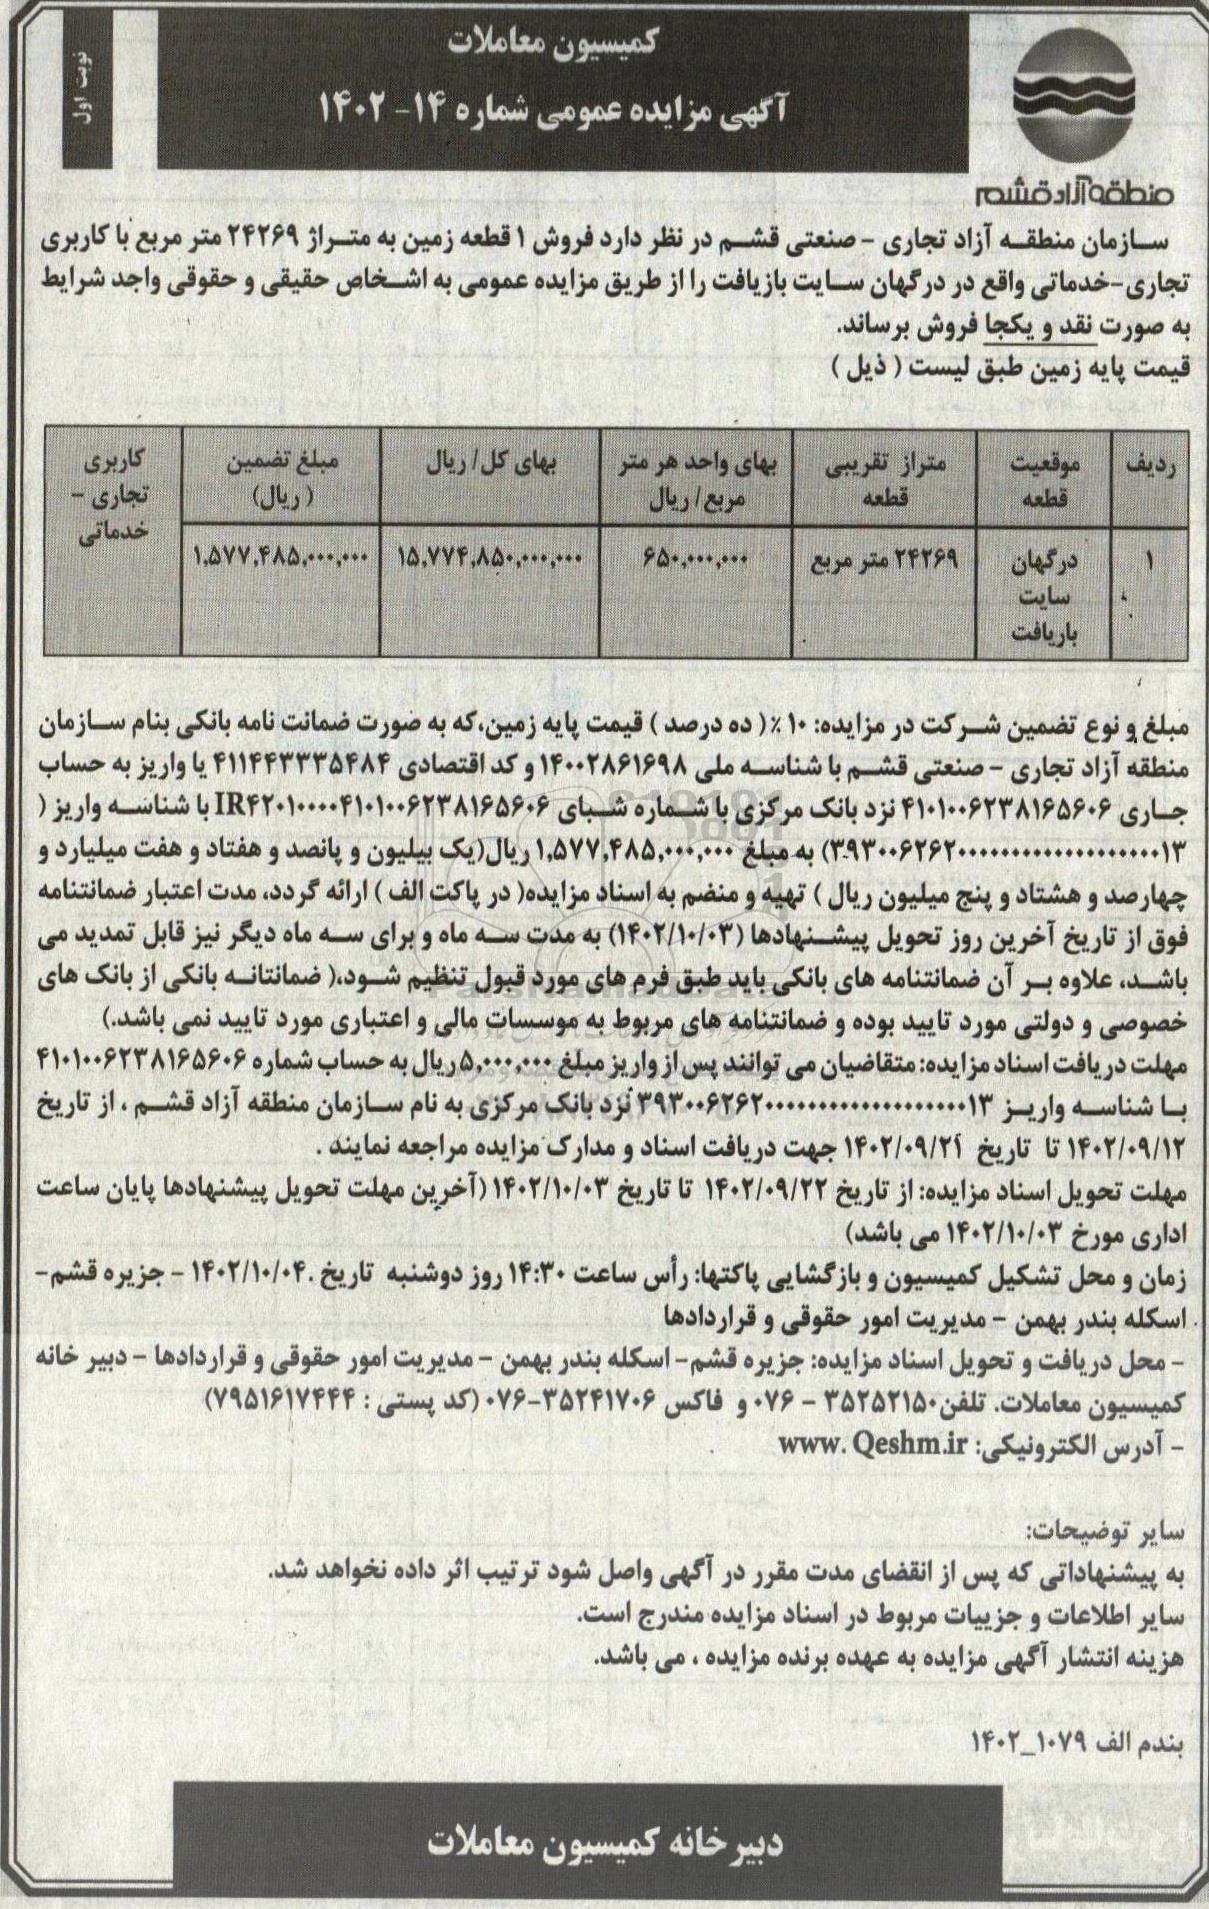 کمیسیون معاملات
آگهی مزایده عمومی شماره ۱۴- ۱۴۰۲
نوبت اول
منطقه آزاد قشم
سازمان منطقه آزاد تجاری - صنعتی قشم در نظر دارد فروش ۱ قطعه زمین به متراژ ۲۴۲۶۹ متر مربع با کاربری
تجاری-خدماتی واقع در درگهان سایت بازیافت را از طریق مزایده عمومی به اشخاص حقیقی و حقوقی واجد شرایط
به صورت نقد و یکجا فروش برساند.
قیمت پایه زمین طبق لیست ( ذیل )
ردیف | موقعیت قطعه | متراژ تقریبی قطعه | بهای واحد هر متر مربع/ ریال | بهای کل/ ریال | مبلغ تضمین ( ریال) | کاربری تجاری - خدماتی
۱ | درگهان سایت باریافت | ۲۴۲۶۹ متر مربع | ۶۵۰,۰۰۰,۰۰۰ | ۱۵,۷۷۴,۸۵۰,۰۰۰,۰۰۰ | ۱,۵۷۷,۴۸۵,۰۰۰,۰۰۰
مبلغ و نوع تضمین شرکت در مزایده: ۱۰ ٪ ( ده درصد ) قیمت پایه زمین،که به صورت ضمانت نامه بانکی بنام سازمان
منطقه آزاد تجاری - صنعتی قشم با شناسه ملی ۱۴۰۰۲۸۶۱۶۹۸ و کد اقتصادی ۴۱۱۴۴۳۳۳۵۴۸۴ یا واریز به حساب
جاری ۴۱۰۱۰۰۶۲۳۸۱۶۵۶۰۶ نزد بانک مرکزی با شماره شبای IR۴۲۰۱۰۰۰۰۴۱۰۱۰۰۶۲۳۸۱۶۵۶۰۶ با شناسه واریز (
۳۹۳۰۰۶۲۶۲۰۰۰۰۰۰۰۰۰۰۰۰۰۰۰۰۰۰۰۱۳) به مبلغ ۱,۵۷۷,۴۸۵,۰۰۰,۰۰۰ ریال(یک بیلیون و پانصد و هفتاد و هفت میلیارد و
چهارصد و هشتاد و پنج میلیون ریال ) تهیه و منضم به اسناد مزایده( در پاکت الف ) ارائه گردد، مدت اعتبار ضمانتنامه
فوق از تاریخ آخرین روز تحویل پیشنهادها (۱۴۰۲/۱۰/۰۳) به مدت سه ماه و برای سه ماه دیگر نیز قابل تمدید می
باشد، علاوه بر آن ضمانتنامه های بانکی باید طبق فرم های مورد قبول تنظیم شود،( ضمانتانه بانکی از بانک های
خصوصی و دولتی مورد تایید بوده و ضمانتنامه های مربوط به موسسات مالی و اعتباری مورد تایید نمی باشد.)
مهلت دریافت اسناد مزایده: متقاضیان می توانند پس از واریز مبلغ ۵,۰۰۰,۰۰۰ ریال به حساب شماره ۴۱۰۱۰۰۶۲۳۸۱۶۵۶۰۶
با شناسه واریز ۳۹۳۰۰۶۲۶۲۰۰۰۰۰۰۰۰۰۰۰۰۰۰۰۰۰۰۰۱۳ نزد بانک مرکزی به نام سازمان منطقه آزاد قشم ، از تاریخ
۱۴۰۲/۰۹/۱۲ تا تاریخ ۱۴۰۲/۰۹/۲۱ جهت دریافت اسناد و مدارک مزایده مراجعه نمایند .
مهلت تحویل اسناد مزایده: از تاریخ ۱۴۰۲/۰۹/۲۲ تا تاریخ ۱۴۰۲/۱۰/۰۳ (آخرین مهلت تحویل پیشنهادها پایان ساعت
اداری مورخ ۱۴۰۲/۱۰/۰۳ می باشد)
زمان و محل تشکیل کمیسیون و بازگشایی پاکتها: رأس ساعت ۱۴:۳۰ روز دوشنبه تاریخ ۱۴۰۲/۱۰/۰۴. - جزیره قشم-
اسکله بندر بهمن - مدیریت امور حقوقی و قراردادها
- محل دریافت و تحویل اسناد مزایده: جزیره قشم- اسکله بندر بهمن - مدیریت امور حقوقی و قراردادها - دبیر خانه
کمیسیون معاملات. تلفن۳۵۲۵۲۱۵۰ - ۰۷۶ و فاکس ۳۵۲۴۱۷۰۶-۰۷۶ (کد پستی : ۷۹۵۱۶۱۷۴۴۴)
- آدرس الکترونیکی: www. Qeshm.ir
سایر توضیحات:
به پیشنهاداتی که پس از انقضای مدت مقرر در آگهی واصل شود ترتیب اثر داده نخواهد شد.
سایر اطلاعات و جزییات مربوط در اسناد مزایده مندرج است.
هزینه انتشار آگهی مزایده به عهده برنده مزایده ، می باشد.
بندم الف ۱۰۷۹_۱۴۰۲
دبیرخانه کمیسیون معاملات